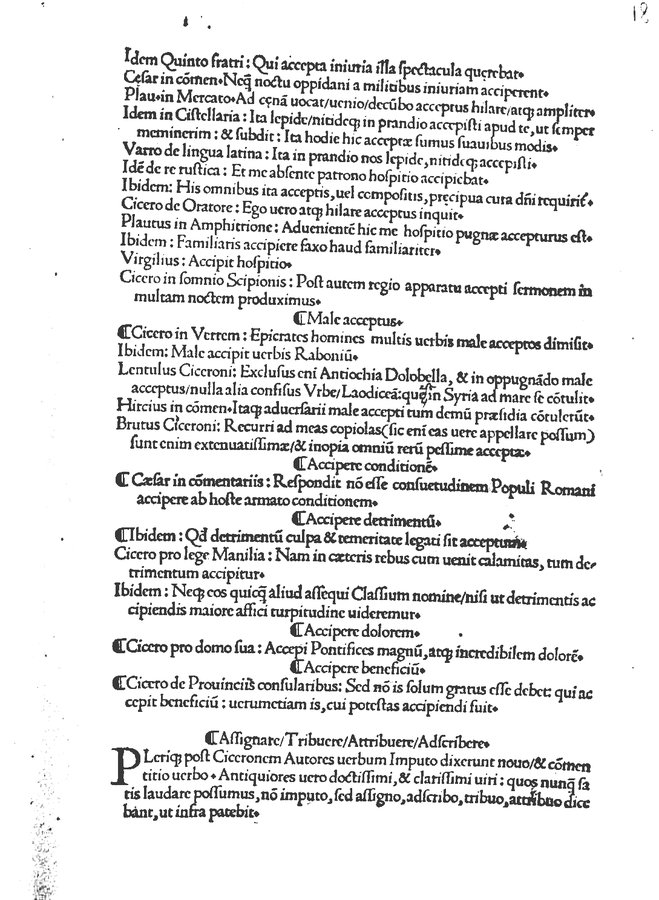 18
Idem Quinto fratri : Qui accepta iniuria illa ſpectacula querebat.
Ceſar in cōmen. Neq; noctu oppidani a militibus iniuriam acciperent.
Plau. in Mercato. Ad cenā uocat/uenio/decūbo acceptus hilare/atq; ampliter.
Idem in Ciſtellaria : Ita lepide/nitideq; in prandio accepiſti apud te, ut ſemper
meminerim : & ſubdit : Ita hodie hic acceptæ ſumus ſuauibus modis.
Varro de lingua latina : Ita in prandio nos lepide, nitideq; accepiſti.
Idē de re ruſtica : Et me abſente patrono hoſpitio accipiebat.
Ibidem: His omnibus ita acceptis, uel compoſitis, pręcipua cura dñi requirit.
Cicero de Oratore : Ego uero atq; hilare acceptus inquit.
Plautus in Amphitrione : Aduenientē hic me hoſpitio pugnæ accepturus eſt.
Ibidem : Familiaris accipiere faxo haud familiariter.
Virgilius : Accipit hoſpitio.
Cicero in ſomnio Scipionis : Poſt autem regio apparatu accepti ſermonem in
multam noctem produximus.
¶ Male acceptus.
¶ Cicero in Verrem : Epicrates homines multis uerbis male acceptos dimiſit.
Ibidem: Male accipit uerbis Raboniū.
Lentulus Ciceroni: Excluſus eni Antiochia Dolobella, & in oppugnādo male
acceptus/nulla alia confiſus Vrbe/Laodiceā: in Syria ad mare ſe cōtulit.
Hircius in cōmen. Itaq; aduerſarii male accepti tum demū præſidia cōtulerūt.
Brutus Ciceroni: Recurri ad meas copiolas (ſic eni eas uere appellare poſſum)
ſunt enim extenuatiſſimæ/& inopia omniū rerū peſſime acceptæ.
¶ Accipere conditionē.
¶ Cæſar in cōmentariis : Reſpondit nō eſſe conſuetudinem Populi Romani
accipere ab hoſte armato conditionem.
¶ Accipere detrimentū.
¶ Ibidem : Qd detrimentū culpa & temeritate legati ſit acceptum.
Cicero pro lege Manilia : Nam in cæteris rebus cum uenit calamitas, tum de
trimentum accipitur.
Ibidem : Neq; eos quicq; aliud aſſequi Claſſium nomine/niſi ut detrimentis ac
cipiendis maiore affici turpitudine uideremur.
¶ Accipere dolorem.
¶ Cicero pro domo ſua : Accepi Pontifices magnū, atq; incredibilem dolorē.
¶ Accipere beneficiū.
¶ Cicero de Prouinciis conſularibus: Sed nō is ſolum gratus eſſe debet: qui ac
cepit beneficiū : uerumetiam is, cui poteſtas accipiendi fuit.
¶ Aſſignare/Tribuere/Attribuere/Adſcribere.
PLeriq; poſt Ciceronem Autores uerbum Imputo dixerunt nouo/& cōmen
titio uerbo. Antiquiores uero doctiſſimi, & clariſſimi uiri : quos nunq̄ ſa
tis laudare poſſumus, nō imputo, ſed aſſigno, adſcribo, tribuo, attribuo dice
bant, ut infra patebit.